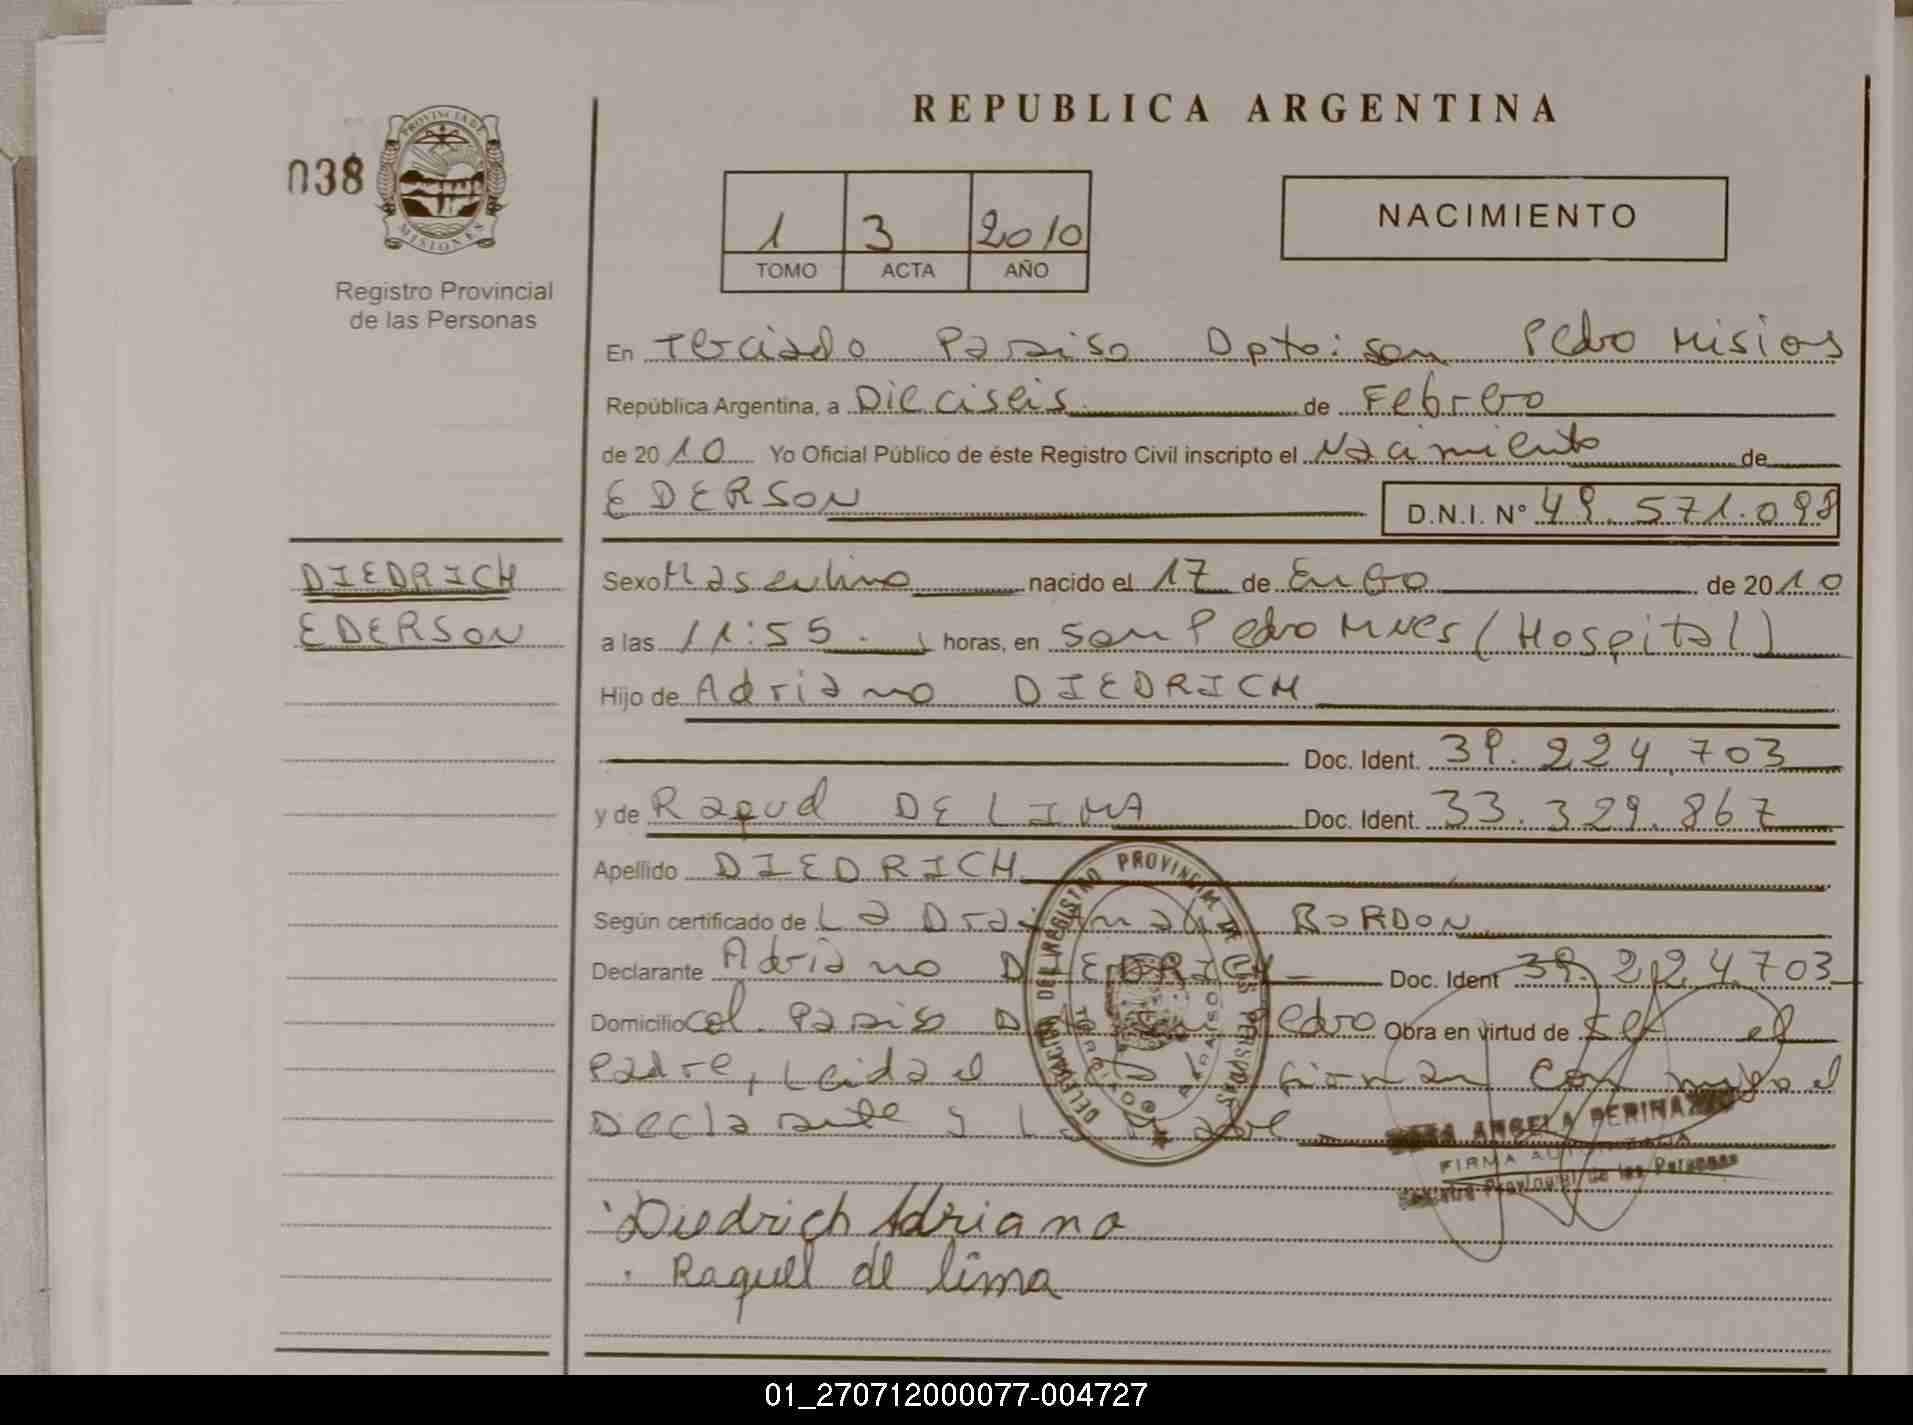 REPUBLICA ARGENTINA
038
PROVINCIA DE
MISIONES
Registro Provincial
de las Personas
1 3 2010
TOMO ACTA AÑO
NACIMIENTO
En Terciado Paraiso Dpto: san Pedro Misions
República Argentina, a Dieciseis de Febrero
de 2010 Yo Oficial Público de éste Registro Civil inscripto el Nacimiento de
EDERSON D.N.I. N° 49.571.098
DIEDRICH
EDERSON
Sexo Masculino nacido el 17 de Enero de 2010
a las 11:55. horas, en San Pedro Mnes (Hospital)
Hijo de Adriano DIEDRICH
Doc. Ident. 39.224.703
y de Raquel DE LIMA Doc. Ident. 33.329.867
Apellido DIEDRICH
Según certificado de La Dra: BORDON
Declarante Adriano DIEDRICH Doc. Ident 39.224.703
Domicilio Col. Paraiso Pedro Obra en virtud de el
Padre, Leida el firman con migo el
Declarante y La Madre
DELEGACION DEL REGISTRO PROVINCIAL DE LAS PERSONAS
TERCIADO PARAISO
ANGELA PERINA
FIRMA AUTORIZADA
Registro Provincial de las Personas
Diedrich Adriano
Raquel de lima
01_270712000077-004727